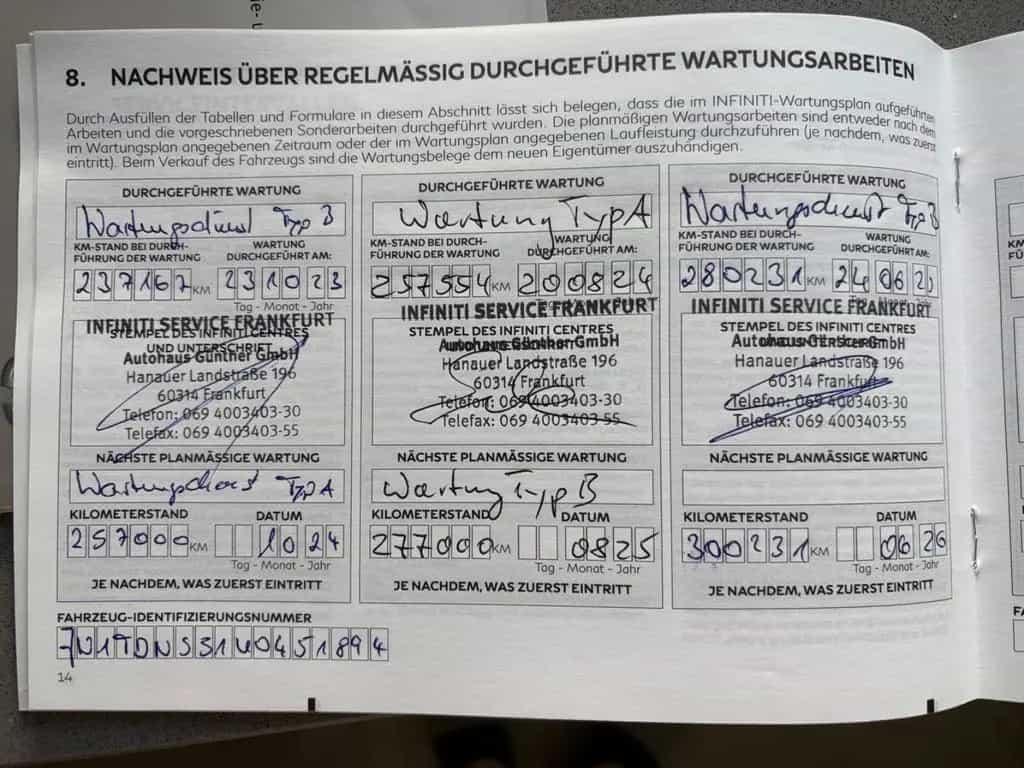 8. NACHWEIS ÜBER REGELMÄSSIG DURCHGEFÜHRTE WARTUNGSARBEITEN
Durch Ausfüllen der Tabellen und Formulare in diesem Abschnitt lässt sich belegen, dass die im INFINITI-Wartungsplan aufgeführten
Arbeiten und die vorgeschriebenen Sonderarbeiten durchgeführt wurden. Die planmäßigen Wartungsarbeiten sind entweder nach dem
im Wartungsplan angegebenen Zeitraum oder der im Wartungsplan angegebenen Laufleistung durchzuführen (je nachdem, was zuerst
eintritt). Beim Verkauf des Fahrzeugs sind die Wartungsbelege dem neuen Eigentümer auszuhändigen.
DURCHGEFÜHRTE WARTUNG
Wartungsdienst Typ B
KM-STAND BEI DURCH- WARTUNG
FÜHRUNG DER WARTUNG DURCHGEFÜHRT AM:
237167 KM 231023
Tag - Monat - Jahr
INFINITI SERVICE FRANKFURT
STEMPEL DES INFINITI CENTRES
UND UNTERSCHRIFT
Autohaus Günther GmbH
Hanauer Landstraße 196
60314 Frankfurt
Telefon: 069 4003403-30
Telefax: 069 4003403-55
NÄCHSTE PLANMÄSSIGE WARTUNG
Wartungsdienst Typ A
KILOMETERSTAND DATUM
257000 KM 1024
Tag - Monat - Jahr
JE NACHDEM, WAS ZUERST EINTRITT
DURCHGEFÜHRTE WARTUNG
Wartung Typ A
KM-STAND BEI DURCH- WARTUNG
FÜHRUNG DER WARTUNG DURCHGEFÜHRT AM:
257554 KM 200824
INFINITI SERVICE FRANKFURT
STEMPEL DES INFINITI CENTRES
Autohaus Günther GmbH
Hanauer Landstraße 196
60314 Frankfurt
Telefon: 069 4003403-30
Telefax: 069 4003403-55
NÄCHSTE PLANMÄSSIGE WARTUNG
Wartung Typ B
KILOMETERSTAND DATUM
277000 KM 0825
Tag - Monat - Jahr
JE NACHDEM, WAS ZUERST EINTRITT
DURCHGEFÜHRTE WARTUNG
Wartungsdienst Typ B
KM-STAND BEI DURCH- WARTUNG
FÜHRUNG DER WARTUNG DURCHGEFÜHRT AM:
280231 KM
Tag - Monat - Jahr
INFINITI SERVICE FRANKFURT
STEMPEL DES INFINITI CENTRES
Autohaus Günther GmbH
Hanauer Landstraße 196
60314 Frankfurt
Telefon: 069 4003403-30
Telefax: 069 4003403-55
NÄCHSTE PLANMÄSSIGE WARTUNG
KILOMETERSTAND DATUM
300231 KM 0626
Tag - Monat - Jahr
JE NACHDEM, WAS ZUERST EINTRITT
FAHRZEUG-IDENTIFIZIERUNGSNUMMER
14